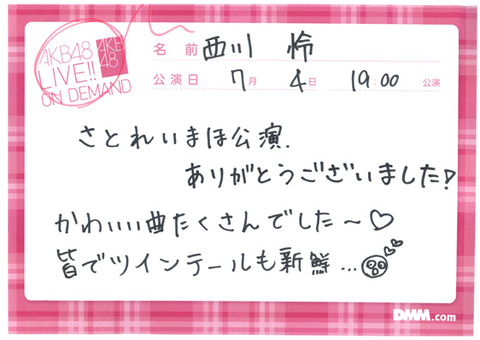 AKB48
LIVE!!
ON DEMAND
AKB
48
名前 西川 怜
公演日 7月 4日 19:00 公演
さとれいまほ公演.
ありがとうございました!
かわいい曲たくさんでした〜♡
皆でツインテールも新鮮...
DMM.com